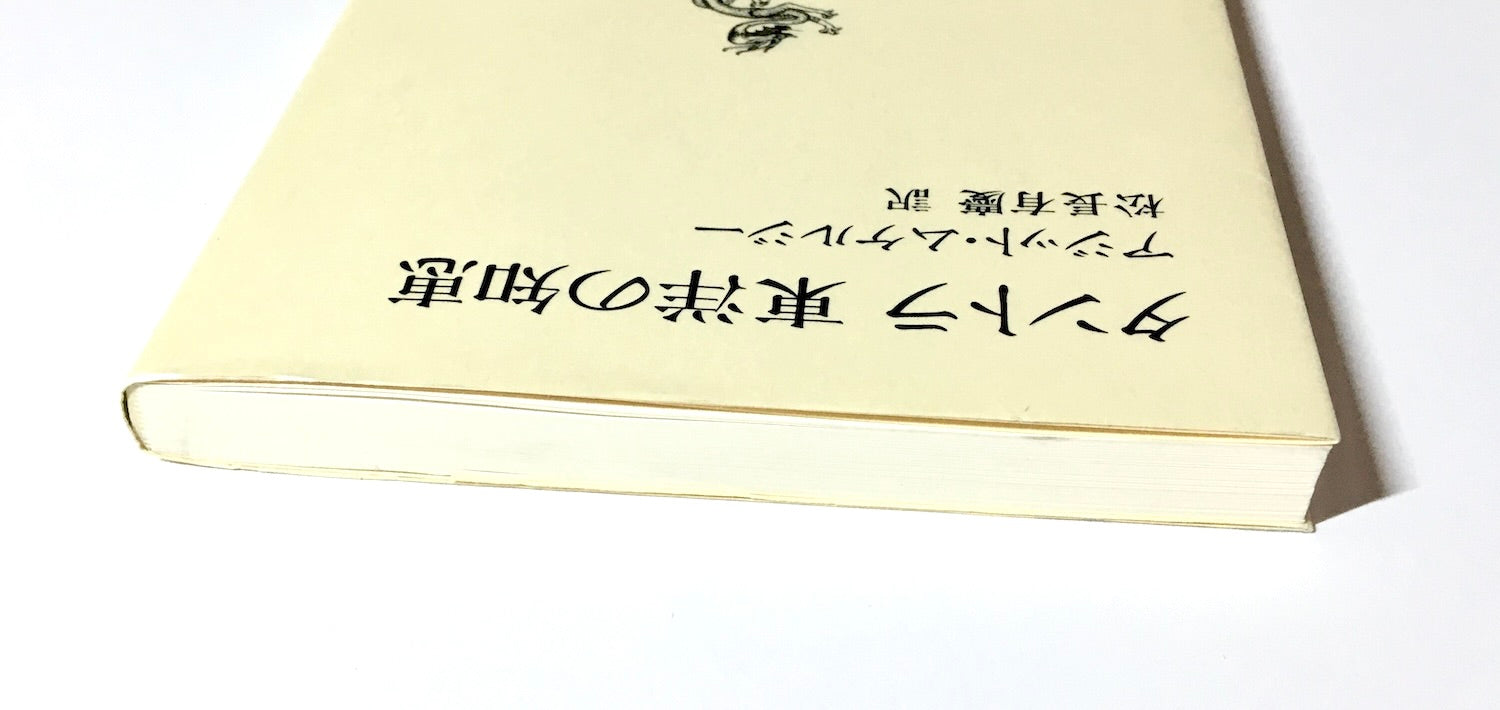 タントラ 東洋の知恵
アジット・ムケルジー
松長有慶 訳